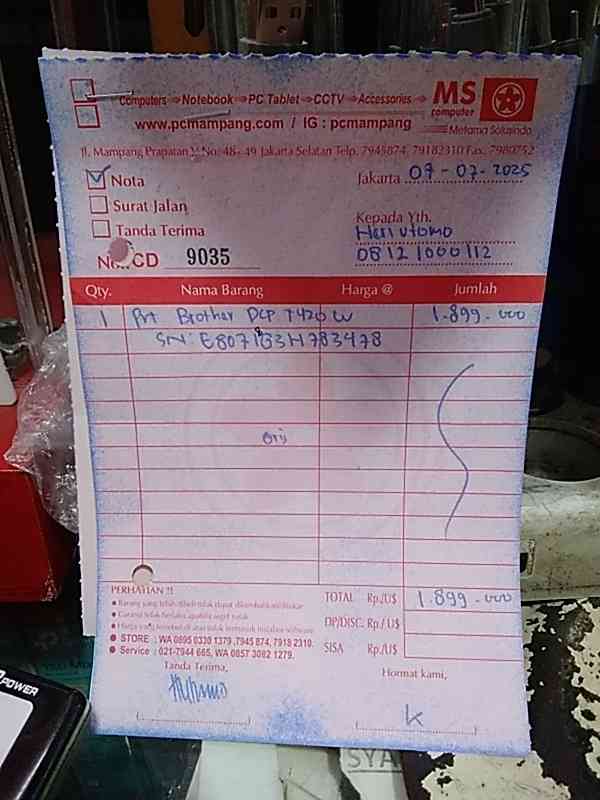 Computers ⇒ Notebook ⇒ PC Tablet ⇒ CCTV ⇒ Accessories
MS
computer
www.pcmampang.com / IG : pcmampang
Metama Solusindo
Jl. Mampang Prapatan V No. 48 - 49 Jakarta Selatan Telp. 7945874, 79182310 Fax. 7980752
Nota
Jakarta 07-07-2025
Surat Jalan
Kepada Yth.
Tanda Terima
Heri utomo
CD 9035
08121000112
Qty. Nama Barang Harga @ Jumlah
1 Prt Brother DCP T420W 1.899.000
SN: E8071G3H783478
Orij
PERHATIAN !!
TOTAL Rp./U$ 1.899.000
Barang yang telah dibeli tidak dapat dikembalikan/ditukar
Garansi tidak berlaku apabila segel rusak
DP/DISC. Rp./ U$
Harga yang tersebut di atas tidak termasuk instalasi software
STORE : WA 0895 0330 1379 ,7945 874, 7918 2310.
Service : 021-7944 665, WA 0857 3082 1279.
SISA Rp./U$
Tanda Terima,
Hormat kami,
K
POWER
SYA